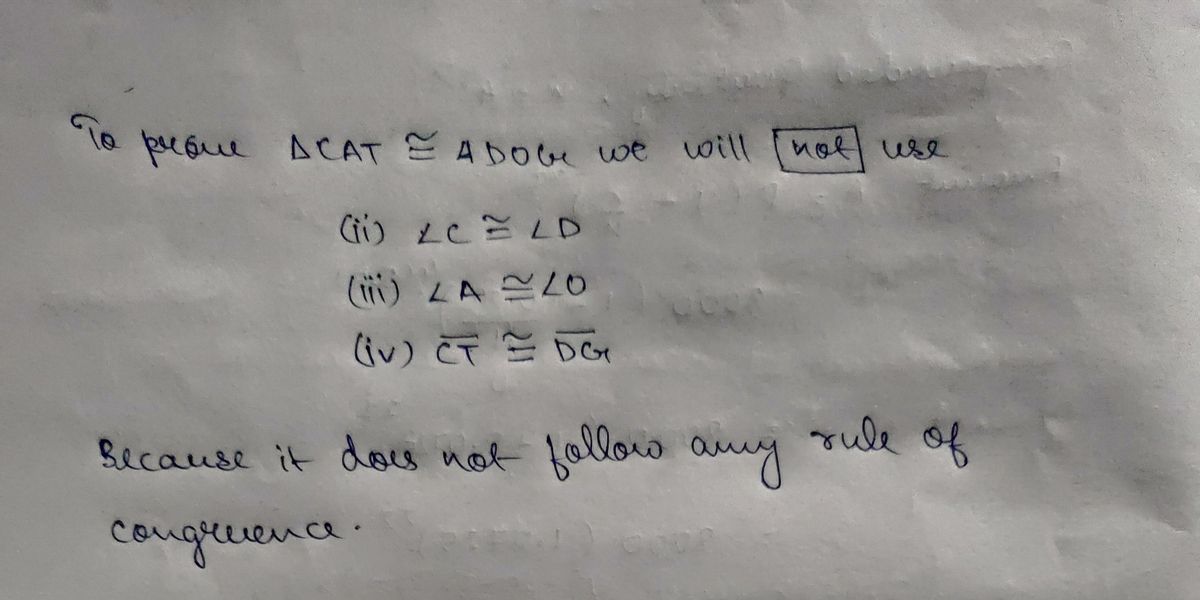 To prove ΔCAT ≅ ΔDOG we will not use
(ii) ∠C ≅ ∠D
(iii) ∠A ≅ ∠O
(iv) C̅T̅ ≅ D̅G̅
Because it does not follow any rule of
congruence.